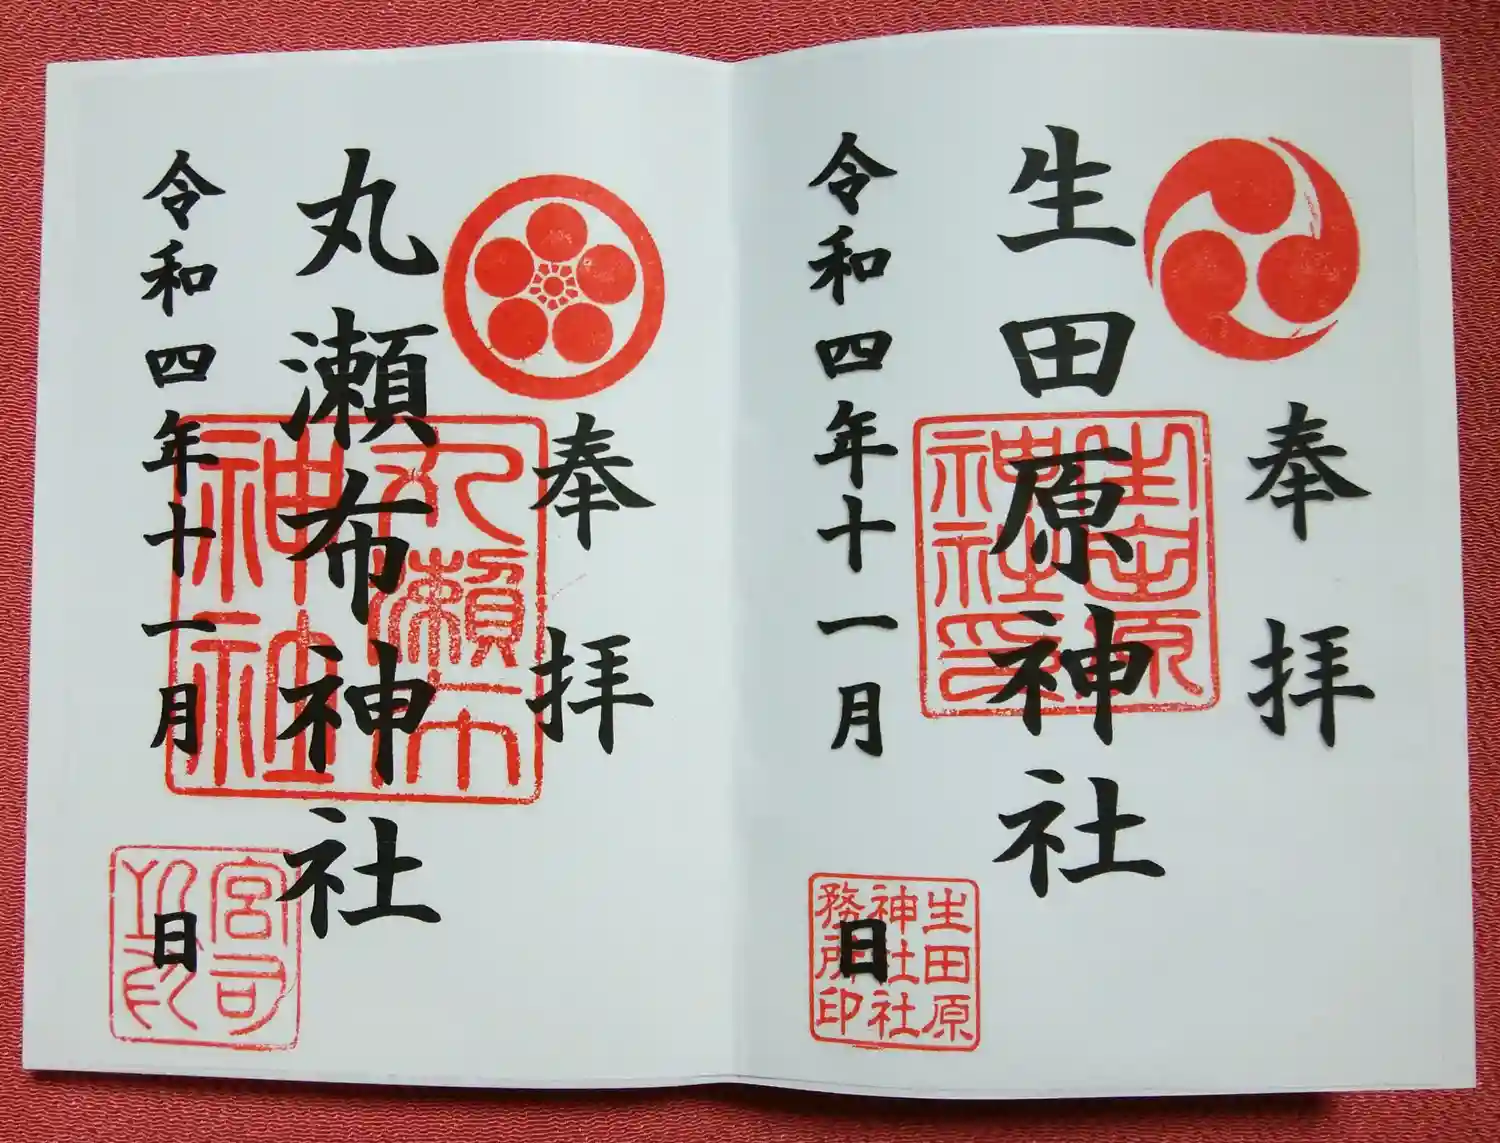 奉拝
生田原神社
生田原
神社印
令和四年十一月 日
生田原
神社社
務所印
奉拝
丸瀬布神社
丸瀬布
神社
令和四年十一月 日
宮司
之印